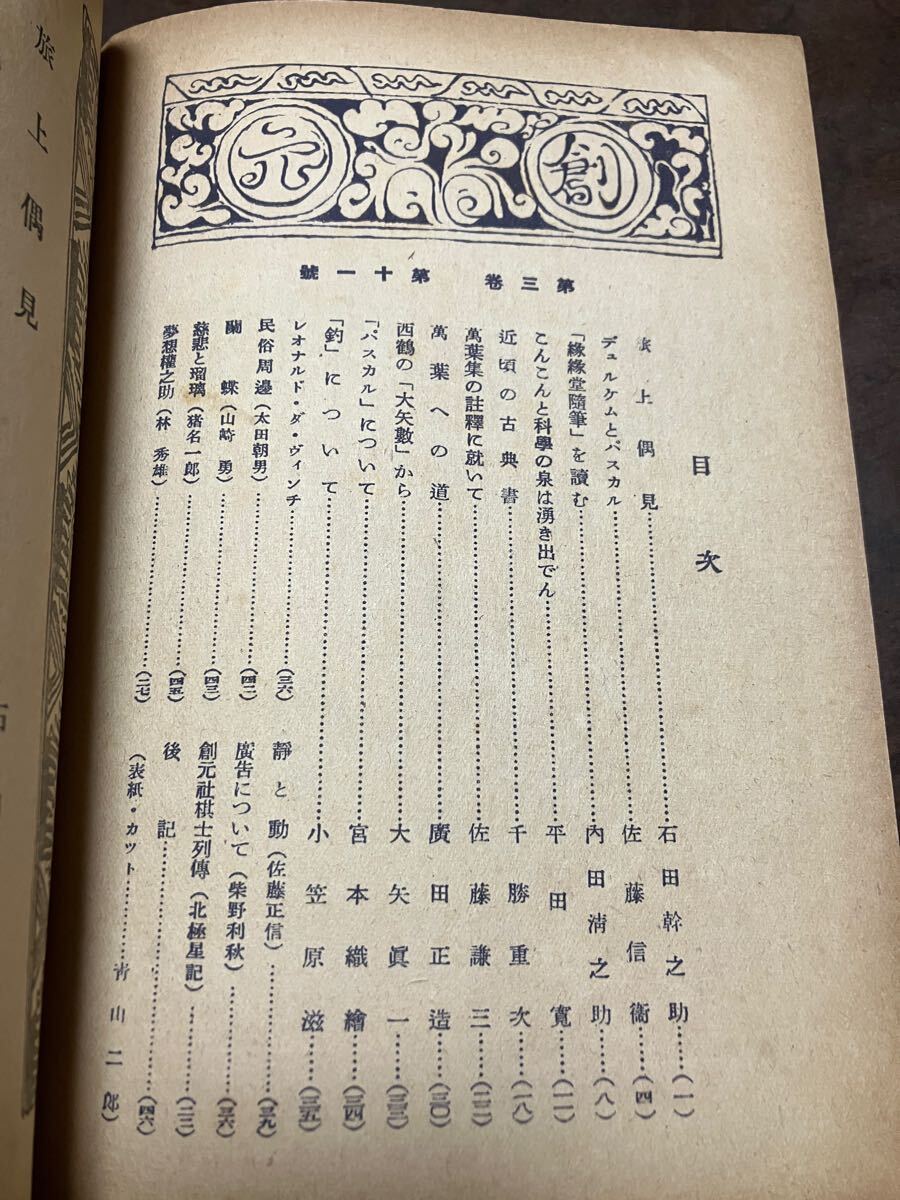 創元
第三卷 第十一號
目次
旅上偶見……石田幹之助……(一)
デュルケムとパスカル……佐藤信衞……(四)
「緣緣堂隨筆」を讀む……內田淸之助……(八)
こんこんと科學の泉は湧き出でん……平田寬……(一一)
近頃の古典書……千勝重次……(一八)
萬葉集の註釋に就いて……佐藤謙三……(二二)
萬葉への道……廣田正造……(三〇)
西鶴の「大矢數」から……大矢眞一……(三三)
「パスカル」について……宮本織繪……(三四)
「釣」について……小笠原滋……(三五)
レオナルド・ダ・ヴィンチ……(三六)
民俗周邊(太田朝男)……(四二)
蘭蝶(山崎勇)……(四三)
慈悲と瑠璃(猪名一郎)……(四五)
夢想權之助(林秀雄)……(二七)
靜と動(佐藤正信)……(三九)
廣告について(柴野利秋)……(三六)
創元社棋士列傳(北極星記)……(二三)
後記……(四六)
(表紙・カット……靑山二郎)
旅上偶見